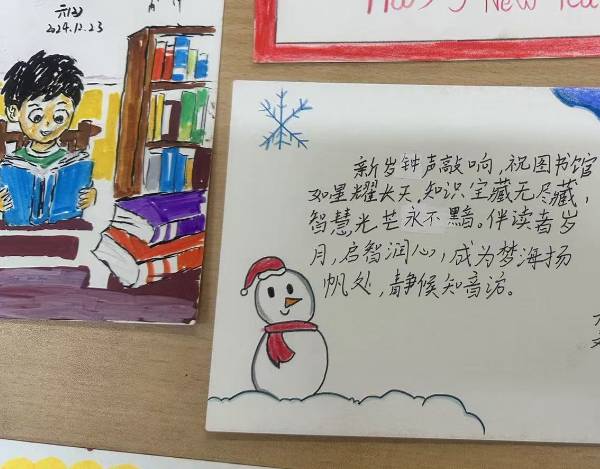 2024.12.23
Happy New Yea
新岁钟声敲响，祝图书馆
如星耀长天，知识宝藏无尽藏，
智慧光芒永不黯。伴读者岁
月，启智润心，成为梦海扬
帆处，静候知音访。